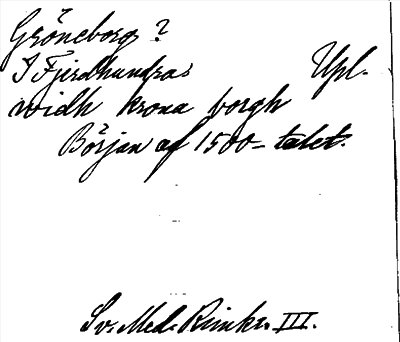 Gröneborg?
I Fjerdhundra: Upl.
widh krona borgh
Början af 1500-talet.
Sv. Med. Rimkr. III.